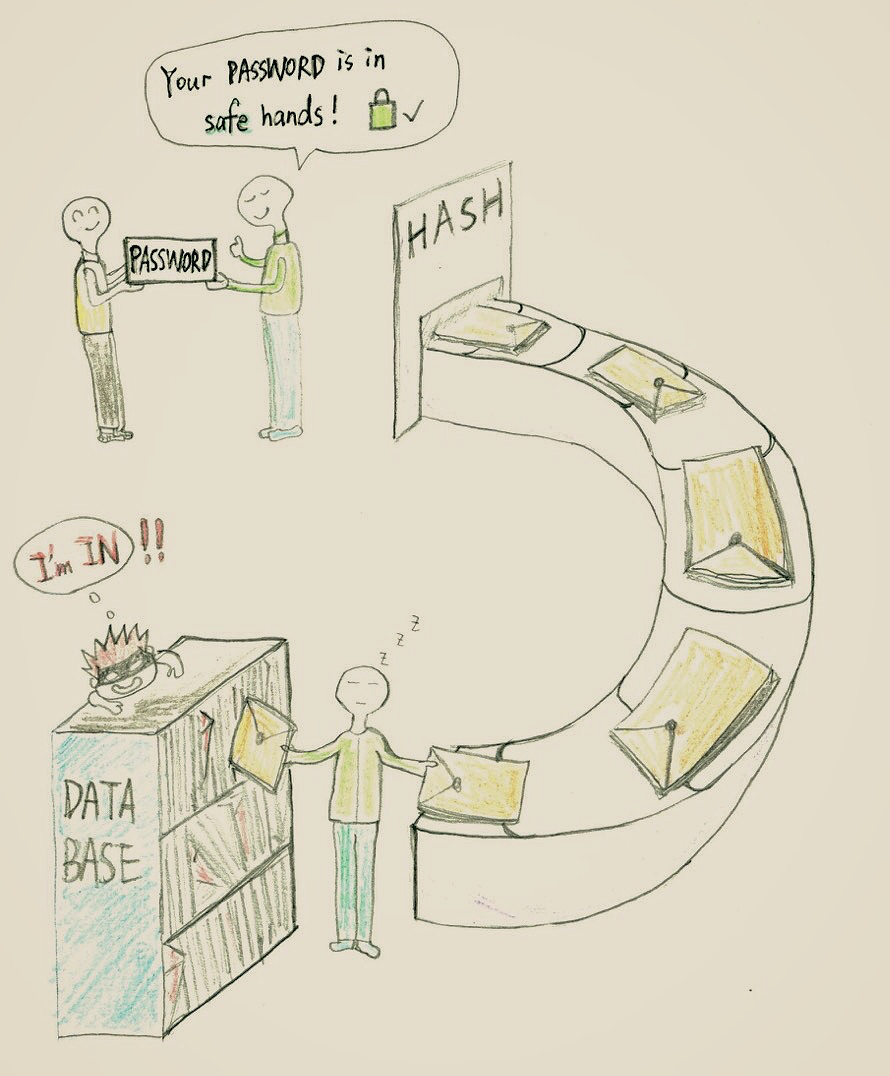 Your PASSWORD is in
safe hands!
PASSWORD
HASH
I'm IN !!
z
z
z
DATA
BASE